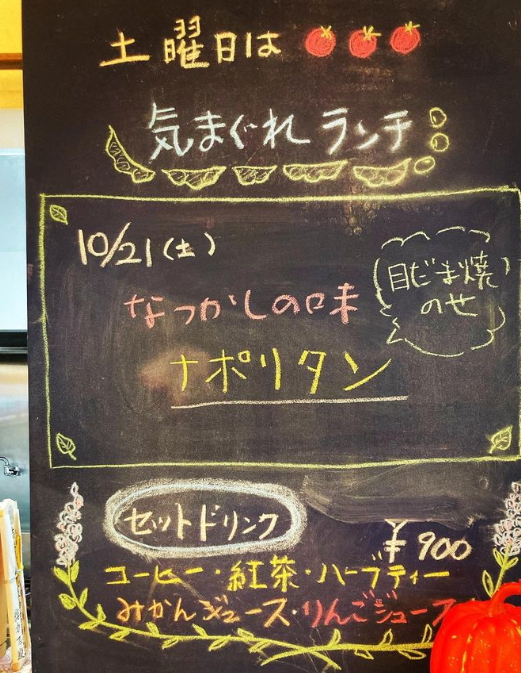 土曜日は
気まぐれランチ
10/21(土)
目だま焼
のせ
なつかしの味
ナポリタン
セットドリンク
¥900
コーヒー・紅茶・ハーブティー
みかんジュース・りんごジュース